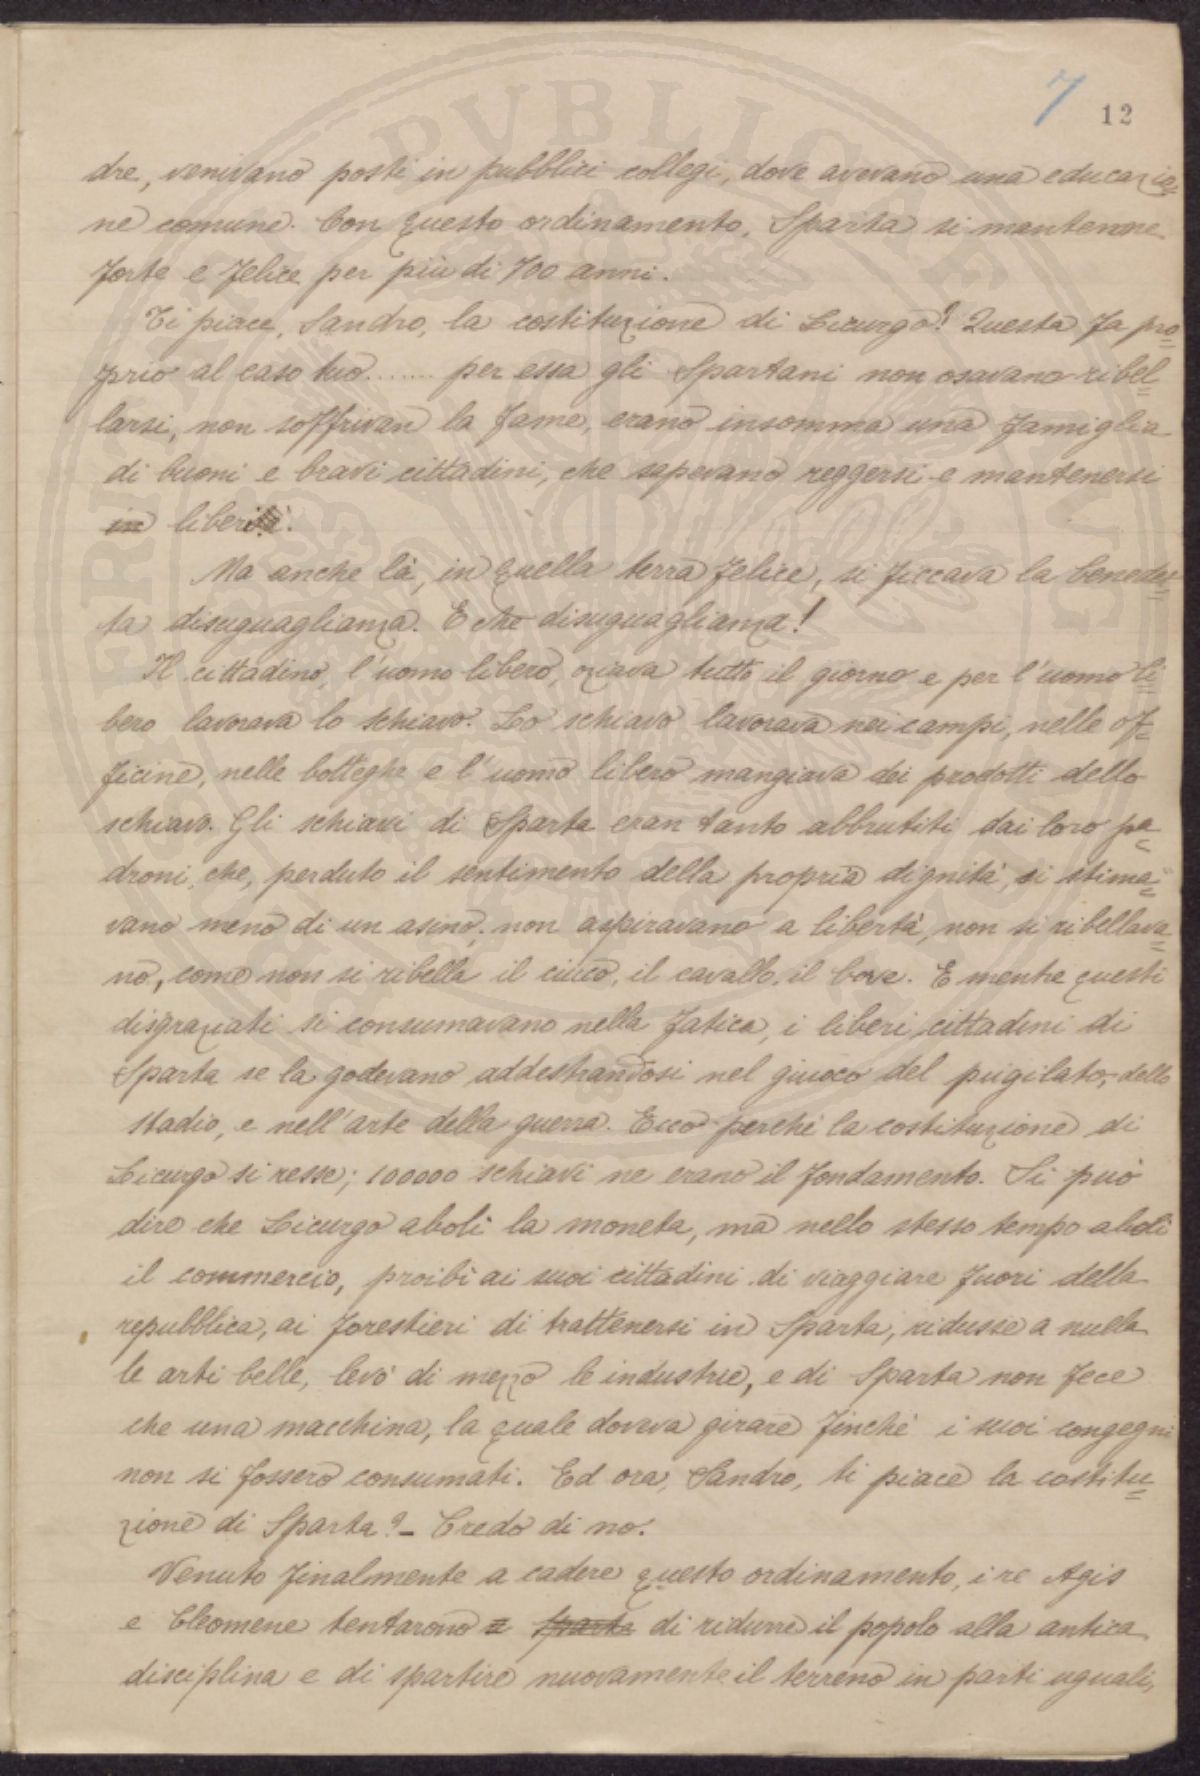 7 12
dre, venivano posti in pubblici collegi, dove avevano una educazio=
ne comune. Con questo ordinamento, Sparta si mantenne
forte e felice per più di 700 anni.
Ti piace, Sandro, la costituzione di Licurgo? Questa fa pro=
prio al caso tuo....... per essa gli Spartani non osavano ribel=
larsi, non soffrivan la fame, erano insomma una famiglia
di buoni e bravi cittadini, che sapevano reggersi e mantenersi
in libertà.
Ma anche là, in quella terra felice, si ficcava la benedet=
ta disuguaglianza. E che disuguaglianza!
Il cittadino, l'uomo libero, oziava tutto il giorno e per l'uomo li=
bero lavorava lo schiavo. Lo schiavo lavorava nei campi, nelle of=
ficine, nelle botteghe e l'uomo libero mangiava dei prodotti dello
schiavo. Gli schiavi di Sparta eran tanto abbrutiti dai loro pa=
droni, che, perduto il sentimento della propria dignità, si stima=
vano meno di un asino; non aspiravano a libertà, non si ribellava=
no, come non si ribella il ciuco, il cavallo, il bove. E mentre questi
disgraziati si consumavano nella fatica, i liberi cittadini di
Sparta se la godevano addestrandosi nel giuoco del pugilato, dello
stadio, e nell'arte della guerra. Ecco perchè la costituzione di
Licurgo si resse; 100000 schiavi ne erano il fondamento. Si può
dire che Licurgo abolì la moneta, ma nello stesso tempo abolì
il commercio, proibì ai suoi cittadini di viaggiare fuori della
repubblica, ai forestieri di trattenersi in Sparta, ridusse a nulla
le arti belle, levò di mezzo le industrie, e di Sparta non fece
che una macchina, la quale doveva girare finchè i suoi congegni
non si fossero consumati. Ed ora, Sandro, ti piace la costitu=
zione di Sparta? - Credo di no.
Venuto finalmente a cadere questo ordinamento, i re Agis
e Cleomene tentarono a Sparta di ridurre il popolo alla antica
disciplina e di spartire nuovamente il terreno in parti uguali,